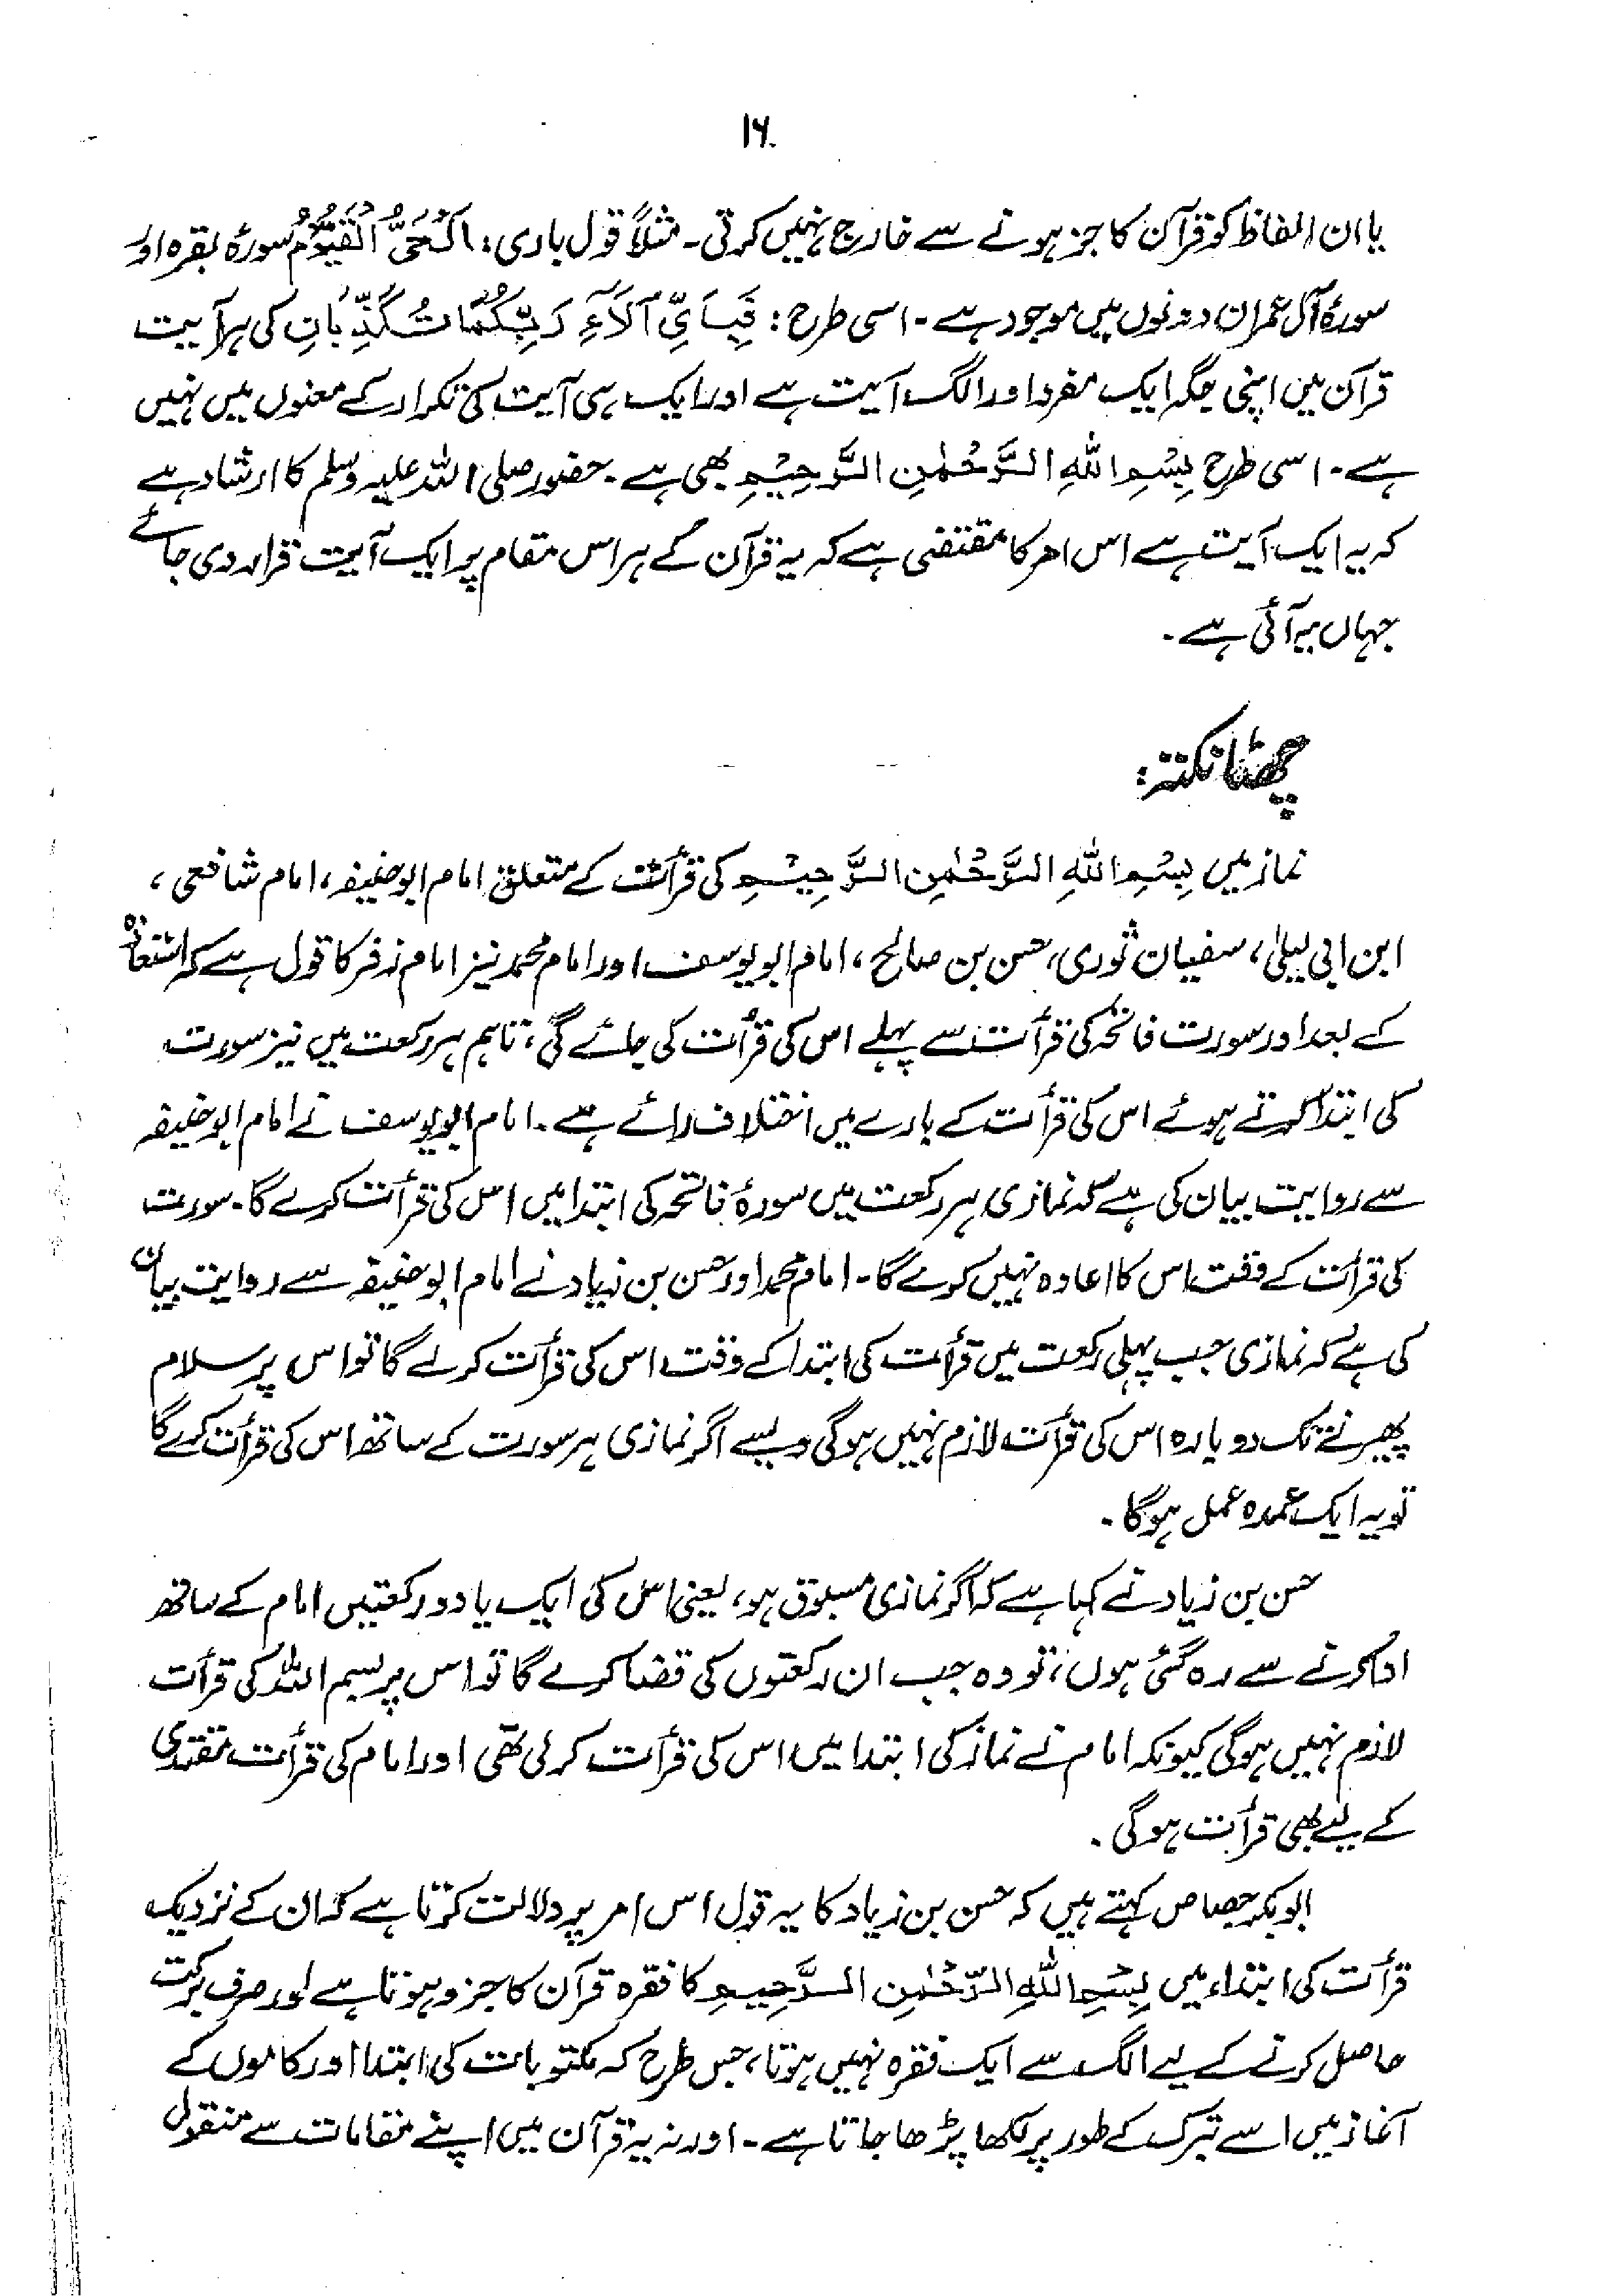 ۱۶
یا ان الفاظ کو قرآن کا جز ہونے سے خارج نہیں کرتی۔ مثلاً قول باری: اَلْحَیُّ الْقَیُّوْمُ سورۂ بقرہ اور
سورۂ آل عمران دونوں میں موجود ہے۔ اسی طرح: فَبِاَیِّ اٰلَآءِ رَبِّکُمَا تُکَذِّبَانِ کی ہر آیت
قرآن میں اپنی جگہ ایک مفرد اور الگ آیت ہے اور ایک ہی آیت کی تکرار کے معنوں میں نہیں
ہے۔ اسی طرح بِسْمِ اللّٰهِ الرَّحْمٰنِ الرَّحِیْمِ بھی ہے۔ حضور صلی اللہ علیہ وسلم کا ارشاد ہے
کہ یہ ایک آیت ہے اس امر کا مقتضی ہے کہ یہ قرآن کے ہر اس مقام پر ایک آیت قرار دی جائے
جہاں یہ آئی ہے۔
چھٹا نکتہ:
نماز میں بِسْمِ اللّٰهِ الرَّحْمٰنِ الرَّحِیْمِ کی قرأت کے متعلق امام ابوحنیفہ، امام شافعی،
ابن ابی لیلیٰ، سفیان ثوری، حسن بن صالح، امام ابویوسف اور امام محمد نیز امام زفر کا قول ہے کہ استعاذہ
کے بعد اور سورت فاتحہ کی قرأت سے پہلے اس کی قرأت کی جائے گی، تاہم ہر رکعت میں نیز سورت
کی ابتدا کرتے ہوئے اس کی قرأت کے بارے میں اختلاف رائے ہے۔ امام ابویوسف نے امام ابوحنیفہ
سے روایت بیان کی ہے کہ نمازی ہر رکعت میں سورۂ فاتحہ کی ابتدا میں اس کی قرأت کرے گا۔ سورت
کی قرأت کے وقت اس کا اعادہ نہیں کرے گا۔ امام محمد اور حسن بن زیاد نے امام ابوحنیفہ سے روایت بیان
کی ہے کہ نمازی جب پہلی رکعت میں قرأت کی ابتدا کے وقت اس کی قرأت کرلے گا تو اس پر سلام
پھیرنے تک دوبارہ اس کی قرأت لازم نہیں ہوگی ویسے اگر نمازی ہر سورت کے ساتھ اس کی قرأت کرے گا
تو یہ ایک عمدہ عمل ہوگا۔
حسن بن زیاد نے کہا ہے کہ اگر نمازی مسبوق ہو، یعنی اس کی ایک یا دو رکعتیں امام کے ساتھ
ادا کرنے سے رہ گئی ہوں، تو وہ جب ان رکعتوں کی قضا کرے گا تو اس پر بسم اللہ کی قرأت
لازم نہیں ہوگی کیونکہ امام نے نماز کی ابتدا میں اس کی قرأت کرلی تھی اور امام کی قرأت مقتدی
کے لیے بھی قرأت ہوگی۔
ابوبکر جصاص کہتے ہیں کہ حسن بن زیاد کا یہ قول اس امر پر دلالت کرتا ہے کہ ان کے نزدیک
قرأت کی ابتداء میں بِسْمِ اللّٰهِ الرَّحْمٰنِ الرَّحِیْمِ کا فقرہ قرآن کا جزو ہوتا ہے اور صرف برکت
حاصل کرنے کے لیے الگ سے ایک فقرہ نہیں ہوتا، جس طرح کہ مکتوبات کی ابتدا اور کاموں کے
آغاز میں اسے تبرک کے طور پر لکھا پڑھا جاتا ہے۔ اور نہ یہ قرآن میں اپنے مقامات سے منقول